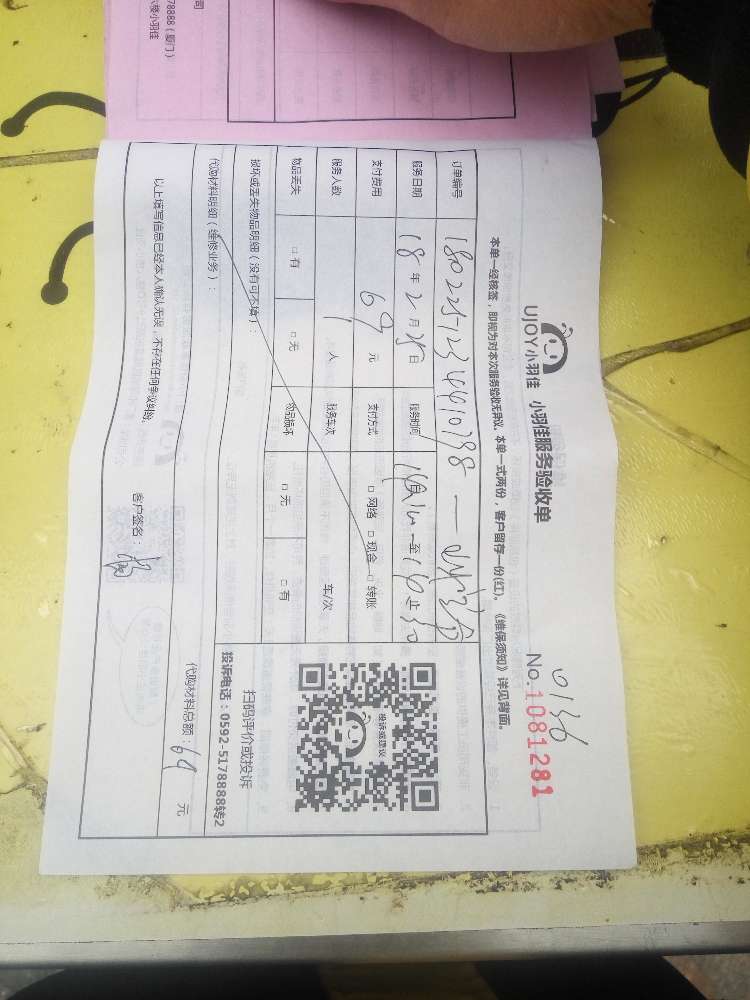 UJOY小羽佳 小羽佳服务验收单
0136
No.1081281
本单一经核签，即视为对本次服务验收无异议。本单一式两份，客户留存一份(红)。《维保须知》详见背面。
订单编号 180225-1234410798
服务日期 18年2月25日 服务时间 至
支付费用 69元 支付方式 □网络 □现金 □转账
服务人数 1人 服务车次 车/次
物品丢失 □有 □无 物品损坏 □无 □有
投诉或建议
扫码评价或投诉
投诉电话：0592-5178888转2
损坏或丢失物品明细（没有可不填）：
代购材料明细（维修业务）：
代购材料总额：69元
以上填写信息已经本人确认无误，不存在任何争议纠纷。
客户签名：
78888（厦门）